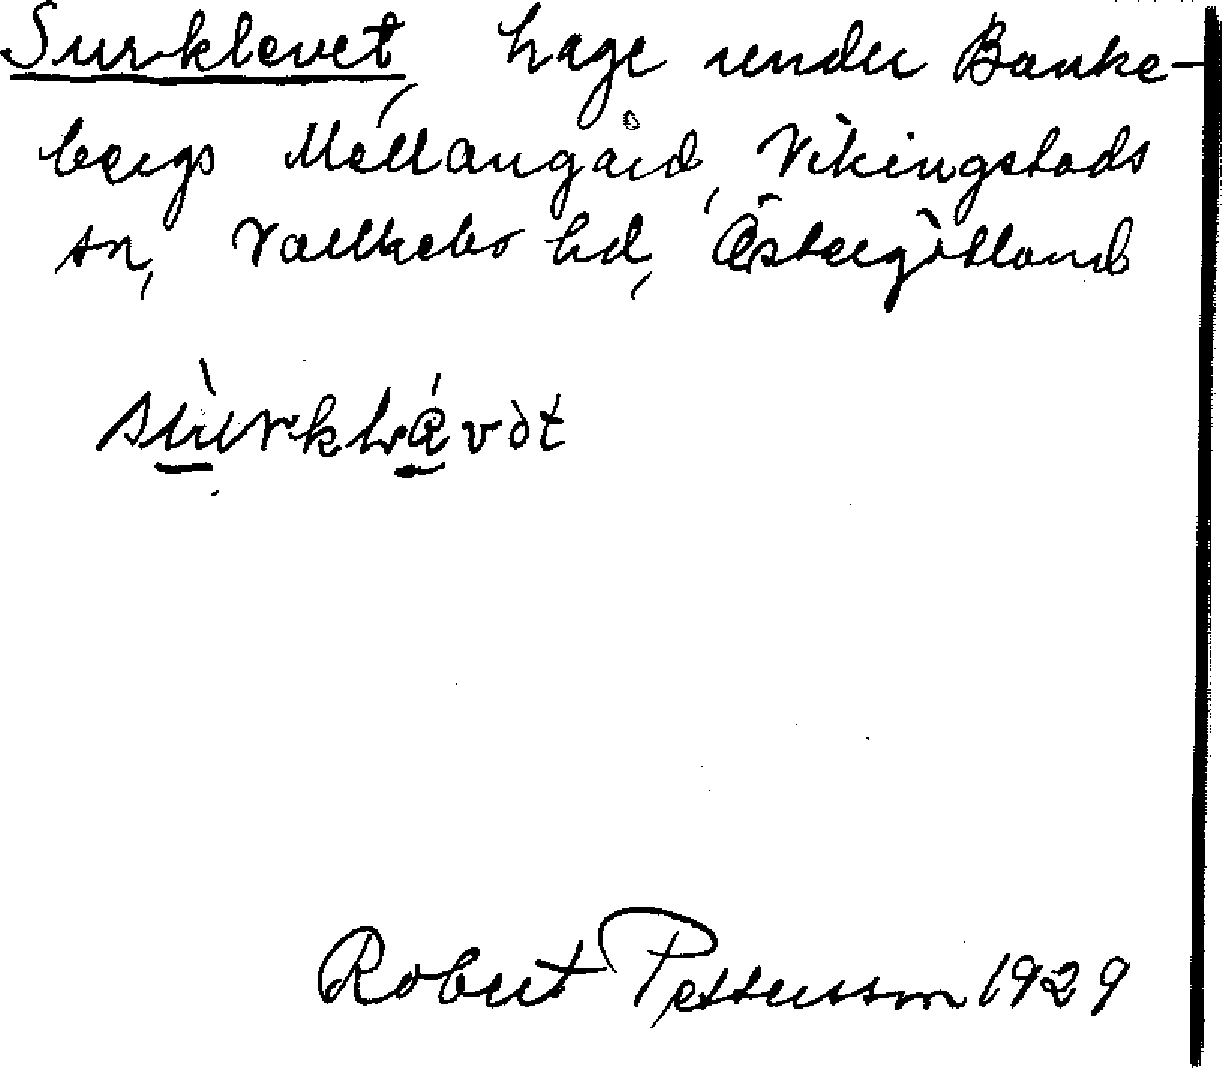 Surklevet, hage under Banke-
bergs Mellangård, Vikingstads
sn, Valkebo hd, Östergötland
Robert Pettersson 1929